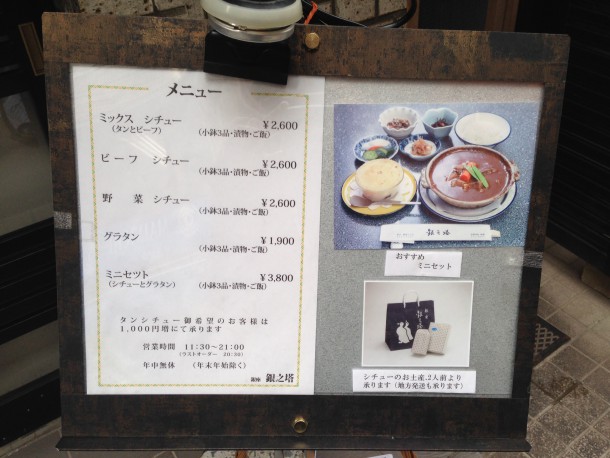 メニュー
ミックス シチュー
(タンとビーフ)
¥2,600
(小鉢3品・漬物・ご飯)
ビーフ シチュー
¥2,600
(小鉢3品・漬物・ご飯)
野菜 シチュー
¥2,600
(小鉢3品・漬物・ご飯)
グラタン
¥1,900
(小鉢3品・漬物・ご飯)
ミニセツト
(シチューとグラタン)
¥3,800
(小鉢3品・漬物・ご飯)
タンシチュー御希望のお客様は
1,000円増にて承ります
営業時間 11:30~21:00
(ラストオーダー 20:30)
年中無休 (年末年始除く)
銀座 銀之塔
銀之塔
おすすめ
ミニセット
シチューのお土産、2人前より
承ります(地方発送も承ります)